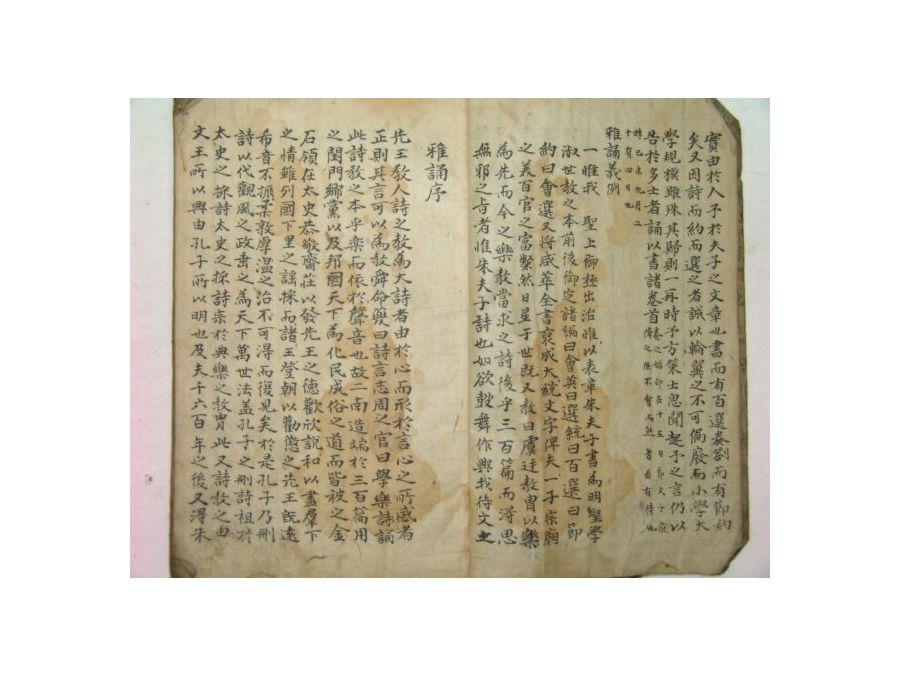 實由於入子於夫子之文章也書而有百選奏劄而有節約
矣又因詩而約而選之者誠以輪翼之不可偏廢而小學大
學規模雖殊其歸則一再時予方策士思聞起予之言仍以
告於多士者誦以書諸卷首
時己未九月二
十有四日也
雅誦義例
一惟我 聖上御極出治惟以表章朱夫子書爲明聖學
淑世敎之本前後御定諸編曰會英曰選統曰百選曰節
約曰會選又將咸萃全書裒成大統文字俾夫一子宗廟
之美百官之富繫然日星于世既又敎曰虞廷敎胄以樂
爲先而今之樂敎當求之詩後乎三百篇而得思
無邪之旨者惟朱夫子詩也如欲鼓舞作興我待文王
雅誦序
先王敎人詩之敎爲大詩者由於心而形於言心之所感者
正則其言可以爲敎舜命夔曰詩言志周之官曰學樂誦詩
此詩敎之本乎樂而依於聲音也故二南造端於三百篇用
之閨門鄉黨以及邦國天下爲化民成俗之道而皆被之金
石領在太史恭敬齋莊以發先王之德歡欣說和以盡羣下
之情雖列國下里之謠採而諸王登朝以勸懲之先王既遠
希音不振柔敦厚溫之治不可得而復見矣於是孔子乃刪
詩以代觀風之政垂之爲天下萬世法蓋孔子之刪詩祖於
太史之採詩太史之採詩宗於典樂之敎胄此又詩敎之由
文王所以興由孔子所以明也及夫千六百年之後又得朱